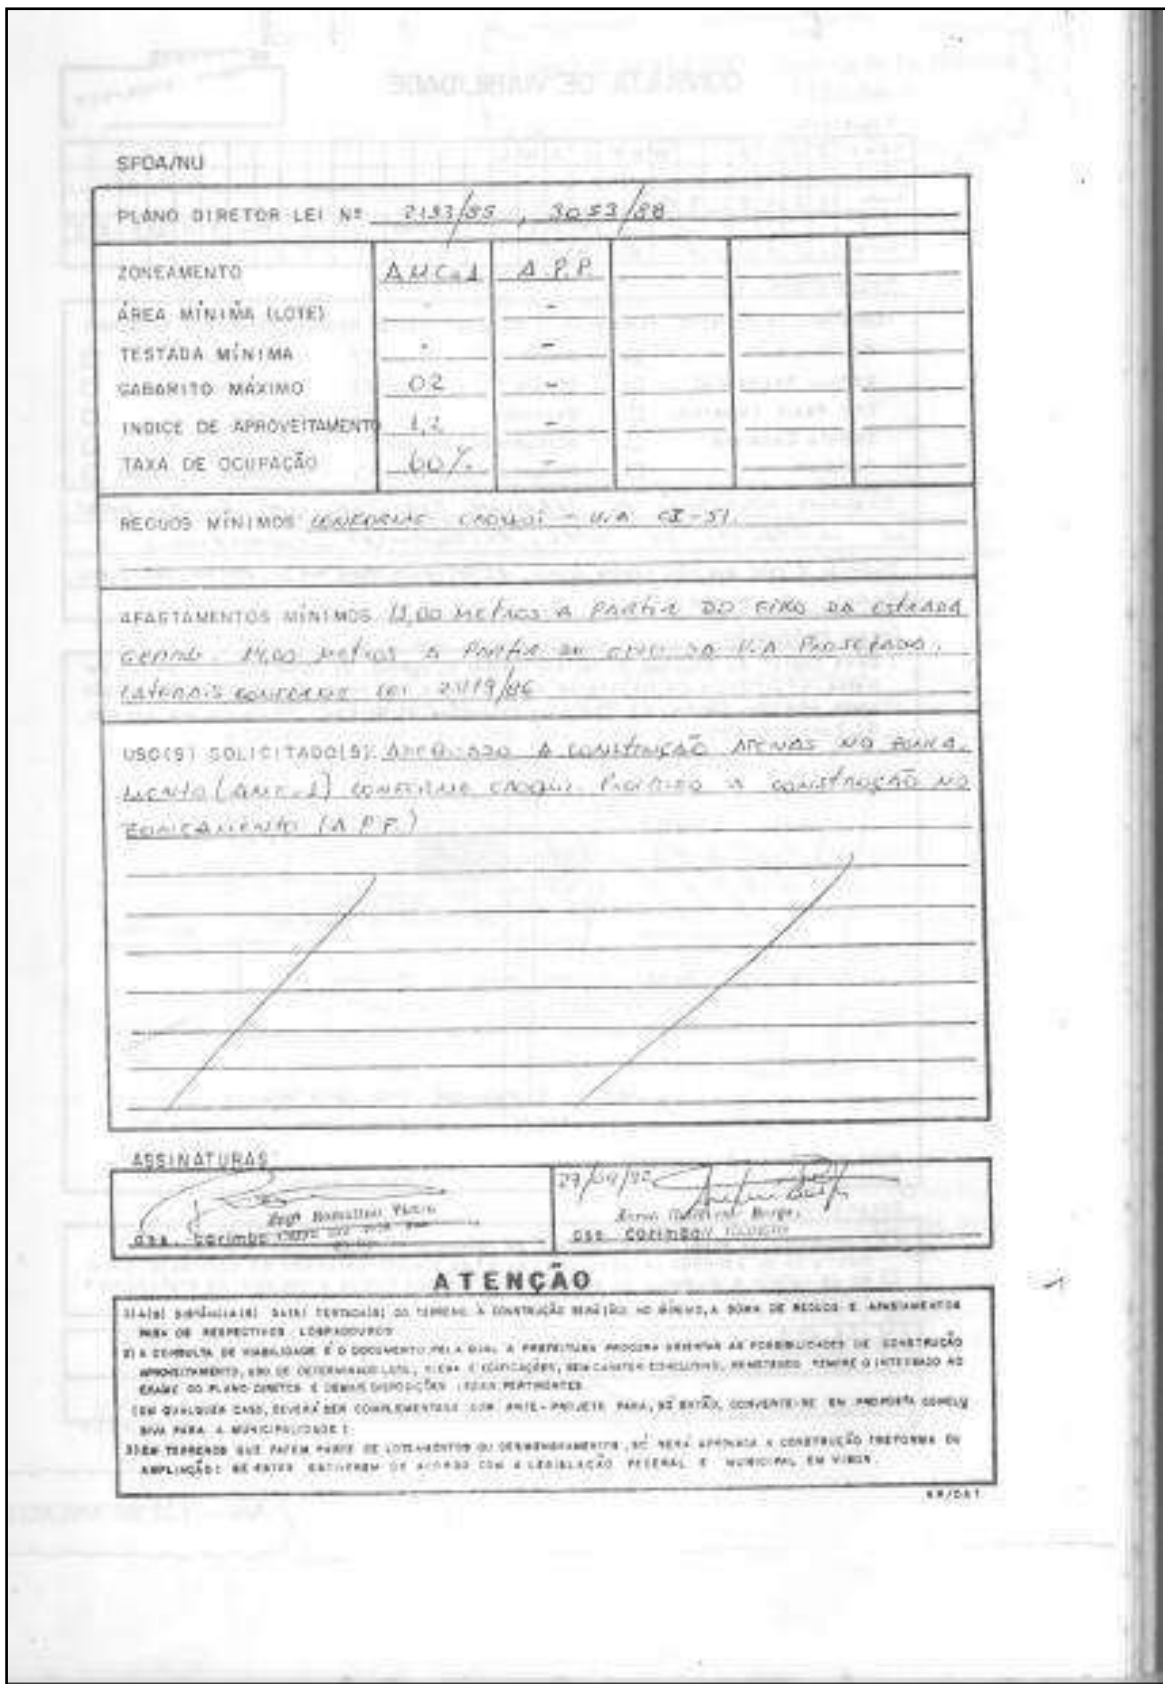 SFOA/NU
PLANO DIRETOR LEI Nº 2193/85, 3053/88
ZONEAMENTO AMC-1 A.P.P.
ÁREA MÍNIMA (LOTE) - -
TESTADA MÍNIMA - -
GABARITO MÁXIMO 02 -
INDICE DE APROVEITAMENTO 1,2 -
TAXA DE OCUPAÇÃO 60% -
RECUOS MÍNIMOS: CONFORME CROQUI - VIA CI-51.
AFASTAMENTOS MÍNIMOS METROS A PARTIR DO EIXO DA ESTRADA
GERAL. METROS A PARTIR DO EIXO DA VIA PROJETADA.
LATERAIS CONFORME LEI
USO(S) SOLICITADO(S): ADEQUADO A CONSTRUÇÃO APENAS NO ZONEA-
MENTO (AMC-1) CONFORME CROQUI. PROIBIDO A CONSTRUÇÃO NO
ZONEAMENTO (A.P.P.)
ASSINATURAS
Engº
ass. carimbo
27/
Borges
ass. carimbo
ATENÇÃO
1) A(S) DISTÂNCIA(S) DA(S) TESTADA(S) DO TERRENO À CONSTRUÇÃO SERÁ(ÃO) NO MÍNIMO, A SOMA DE RECUOS E AFASTAMENTOS
PARA OS RESPECTIVOS LOGRADOUROS
2) A CONSULTA DE VIABILIDADE É O DOCUMENTO PELA QUAL A PREFEITURA PROCURA ORIENTAR AS POSSIBILIDADES DE CONSTRUÇÃO
APROVEITAMENTO, USO DE DETERMINADO LOTE, E EDIFICAÇÕES, SEM CARATER CONCLUSIVO, REMETENDO SEMPRE O INTERESSADO AO
EXAME DO PLANO DIRETOR E DEMAIS DISPOSIÇÕES LEGAIS PERTINENTES
(EM QUALQUER CASO, DEVERÁ SER COMPLEMENTADA COM ANTE-PROJETO PARA, SÓ ENTÃO, CONVERTE-SE EM PROPOSTA CONCLU
SIVA PARA A MUNICIPALIDADE)
3) EM TERRENOS QUE FAZEM PARTE DE LOTEAMENTOS OU DESMEMBRAMENTOS, SÓ SERÁ APROVADA A CONSTRUÇÃO (REFORMA OU
AMPLIAÇÃO) SE ESTES ESTIVEREM DE ACORDO COM A LEGISLAÇÃO FEDERAL E MUNICIPAL EM VIGOR